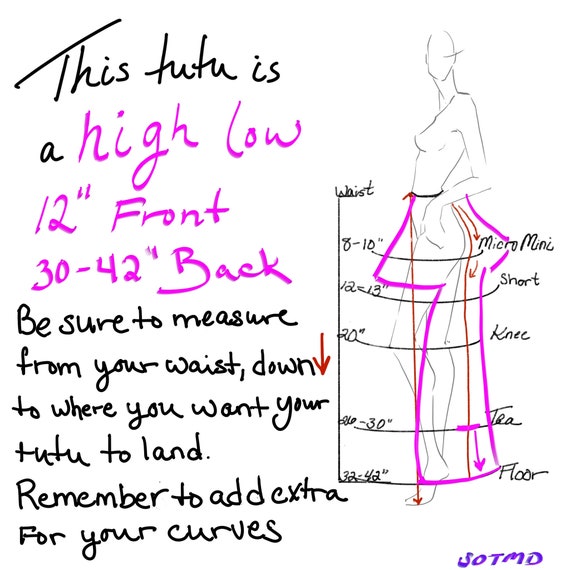 This tutu is
a high low
12" Front
30-42" Back
Be sure to measure
from your waist, down
to where you want your
tutu to land.
Remember to add extra
For your curves
Waist
8-10" Micro Mini
12-13" Short
20" Knee
26-30" Tea
32-42" Floor
SOTMD